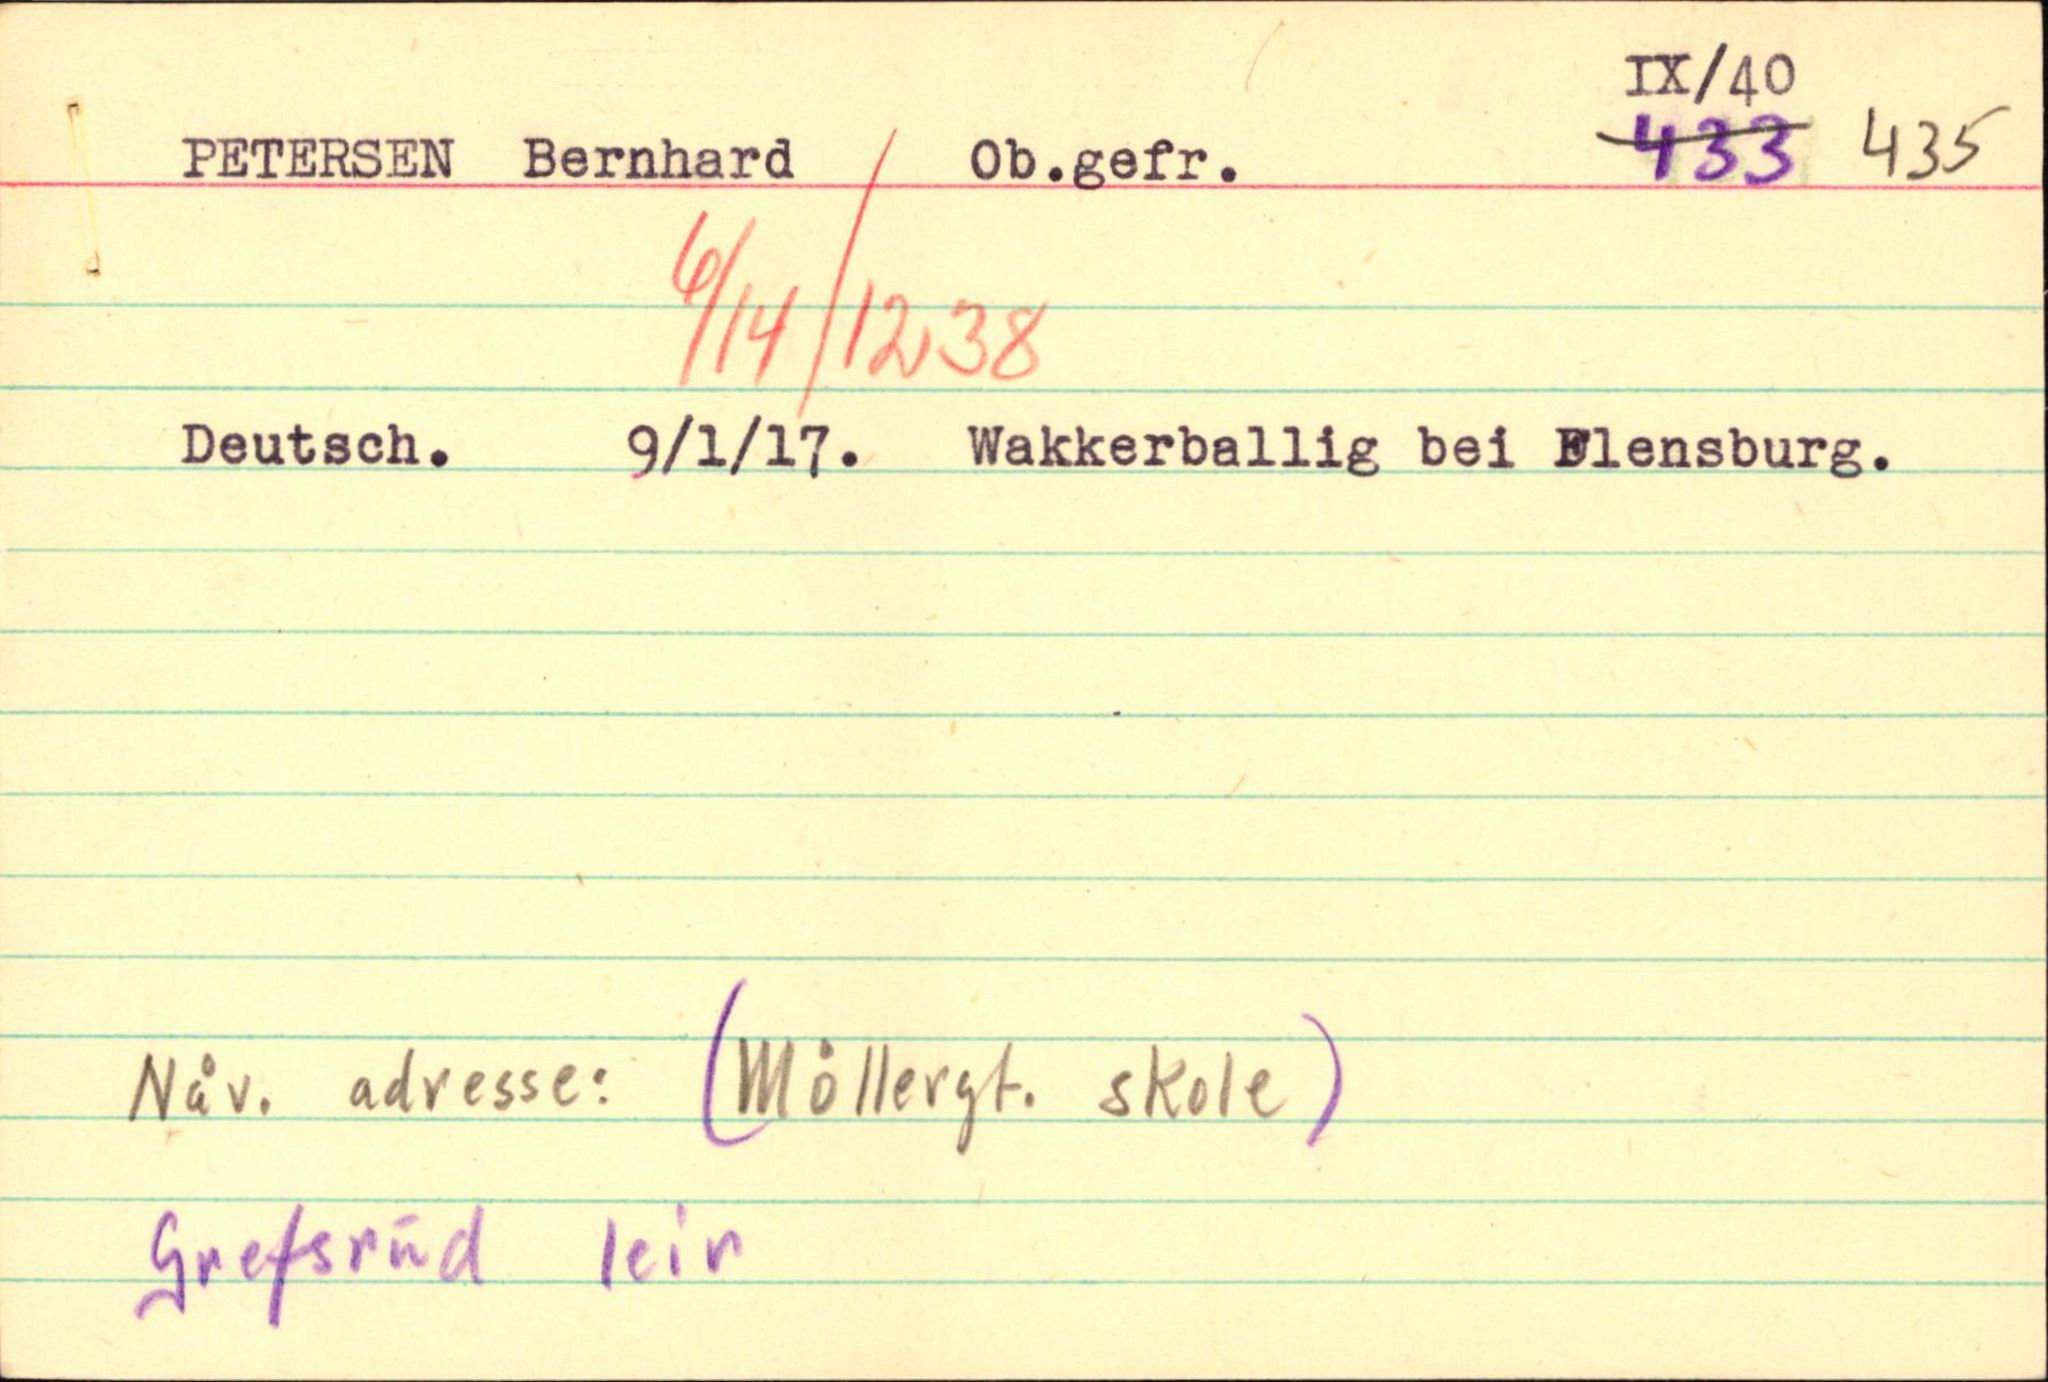 IX/40
PETERSEN Bernhard Ob.gefr. 433 435
6/14/1238
Deutsch. 9/1/17. Wakkerballig bei Flensburg.
Nåv. adresse: (Möllergt. skole)
Grefsrud leir